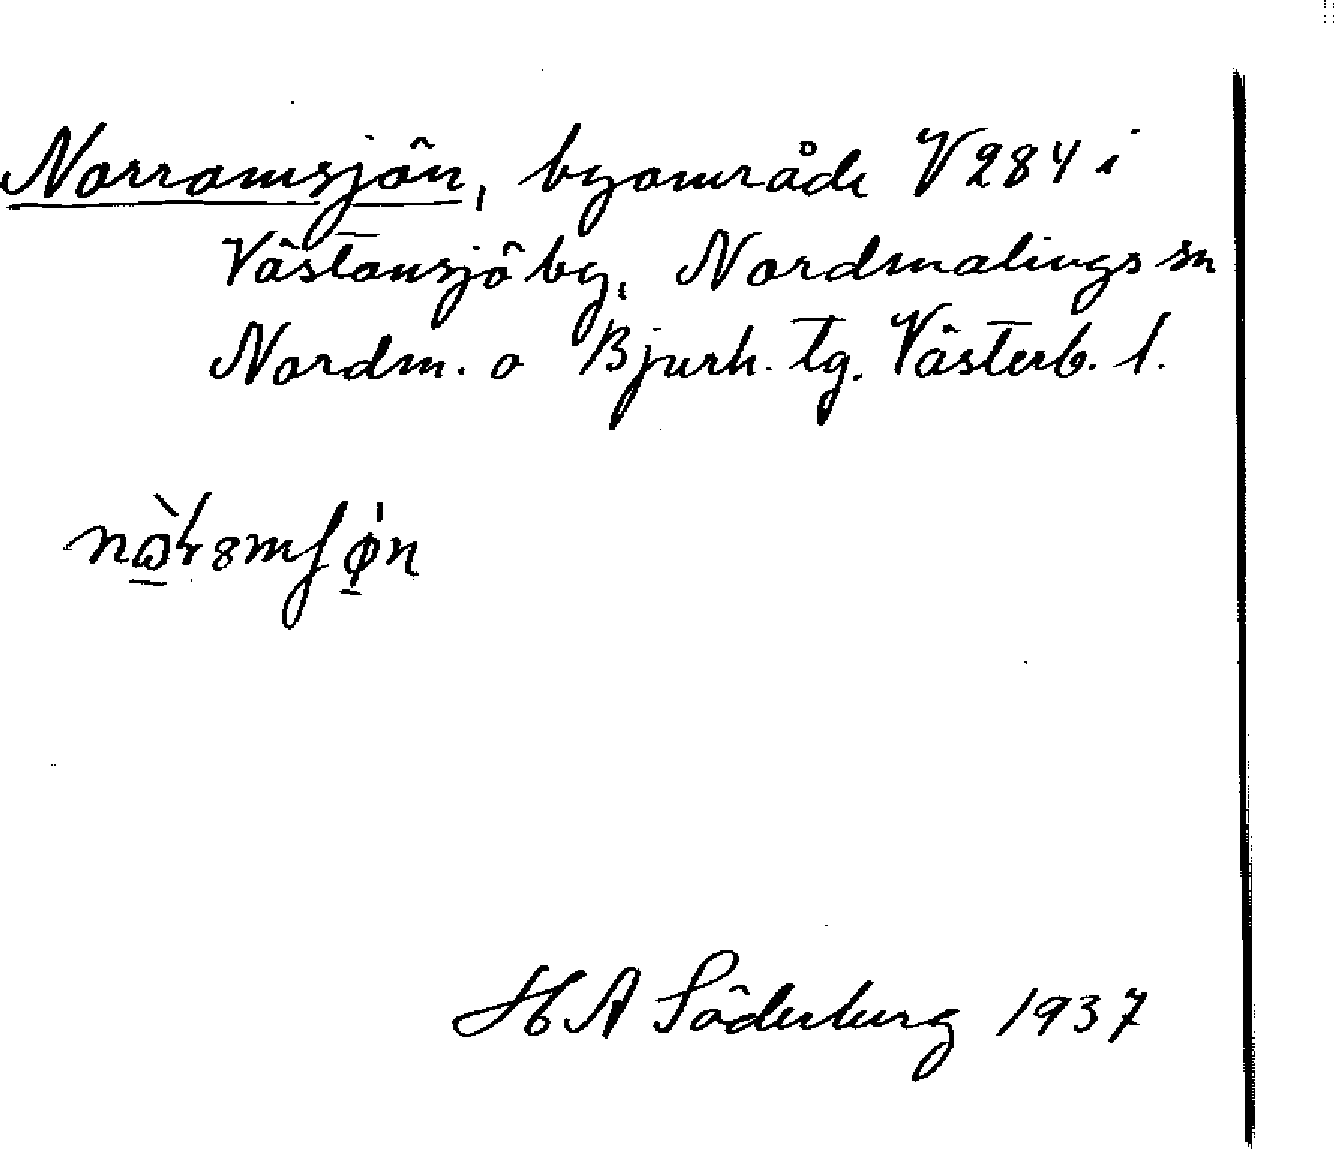 Norromsjön, byområde V 284 i
Västansjö by, Nordmalings sn
Nordm. o Bjurh. tg. Västerb. l.
H A Söderberg 1937